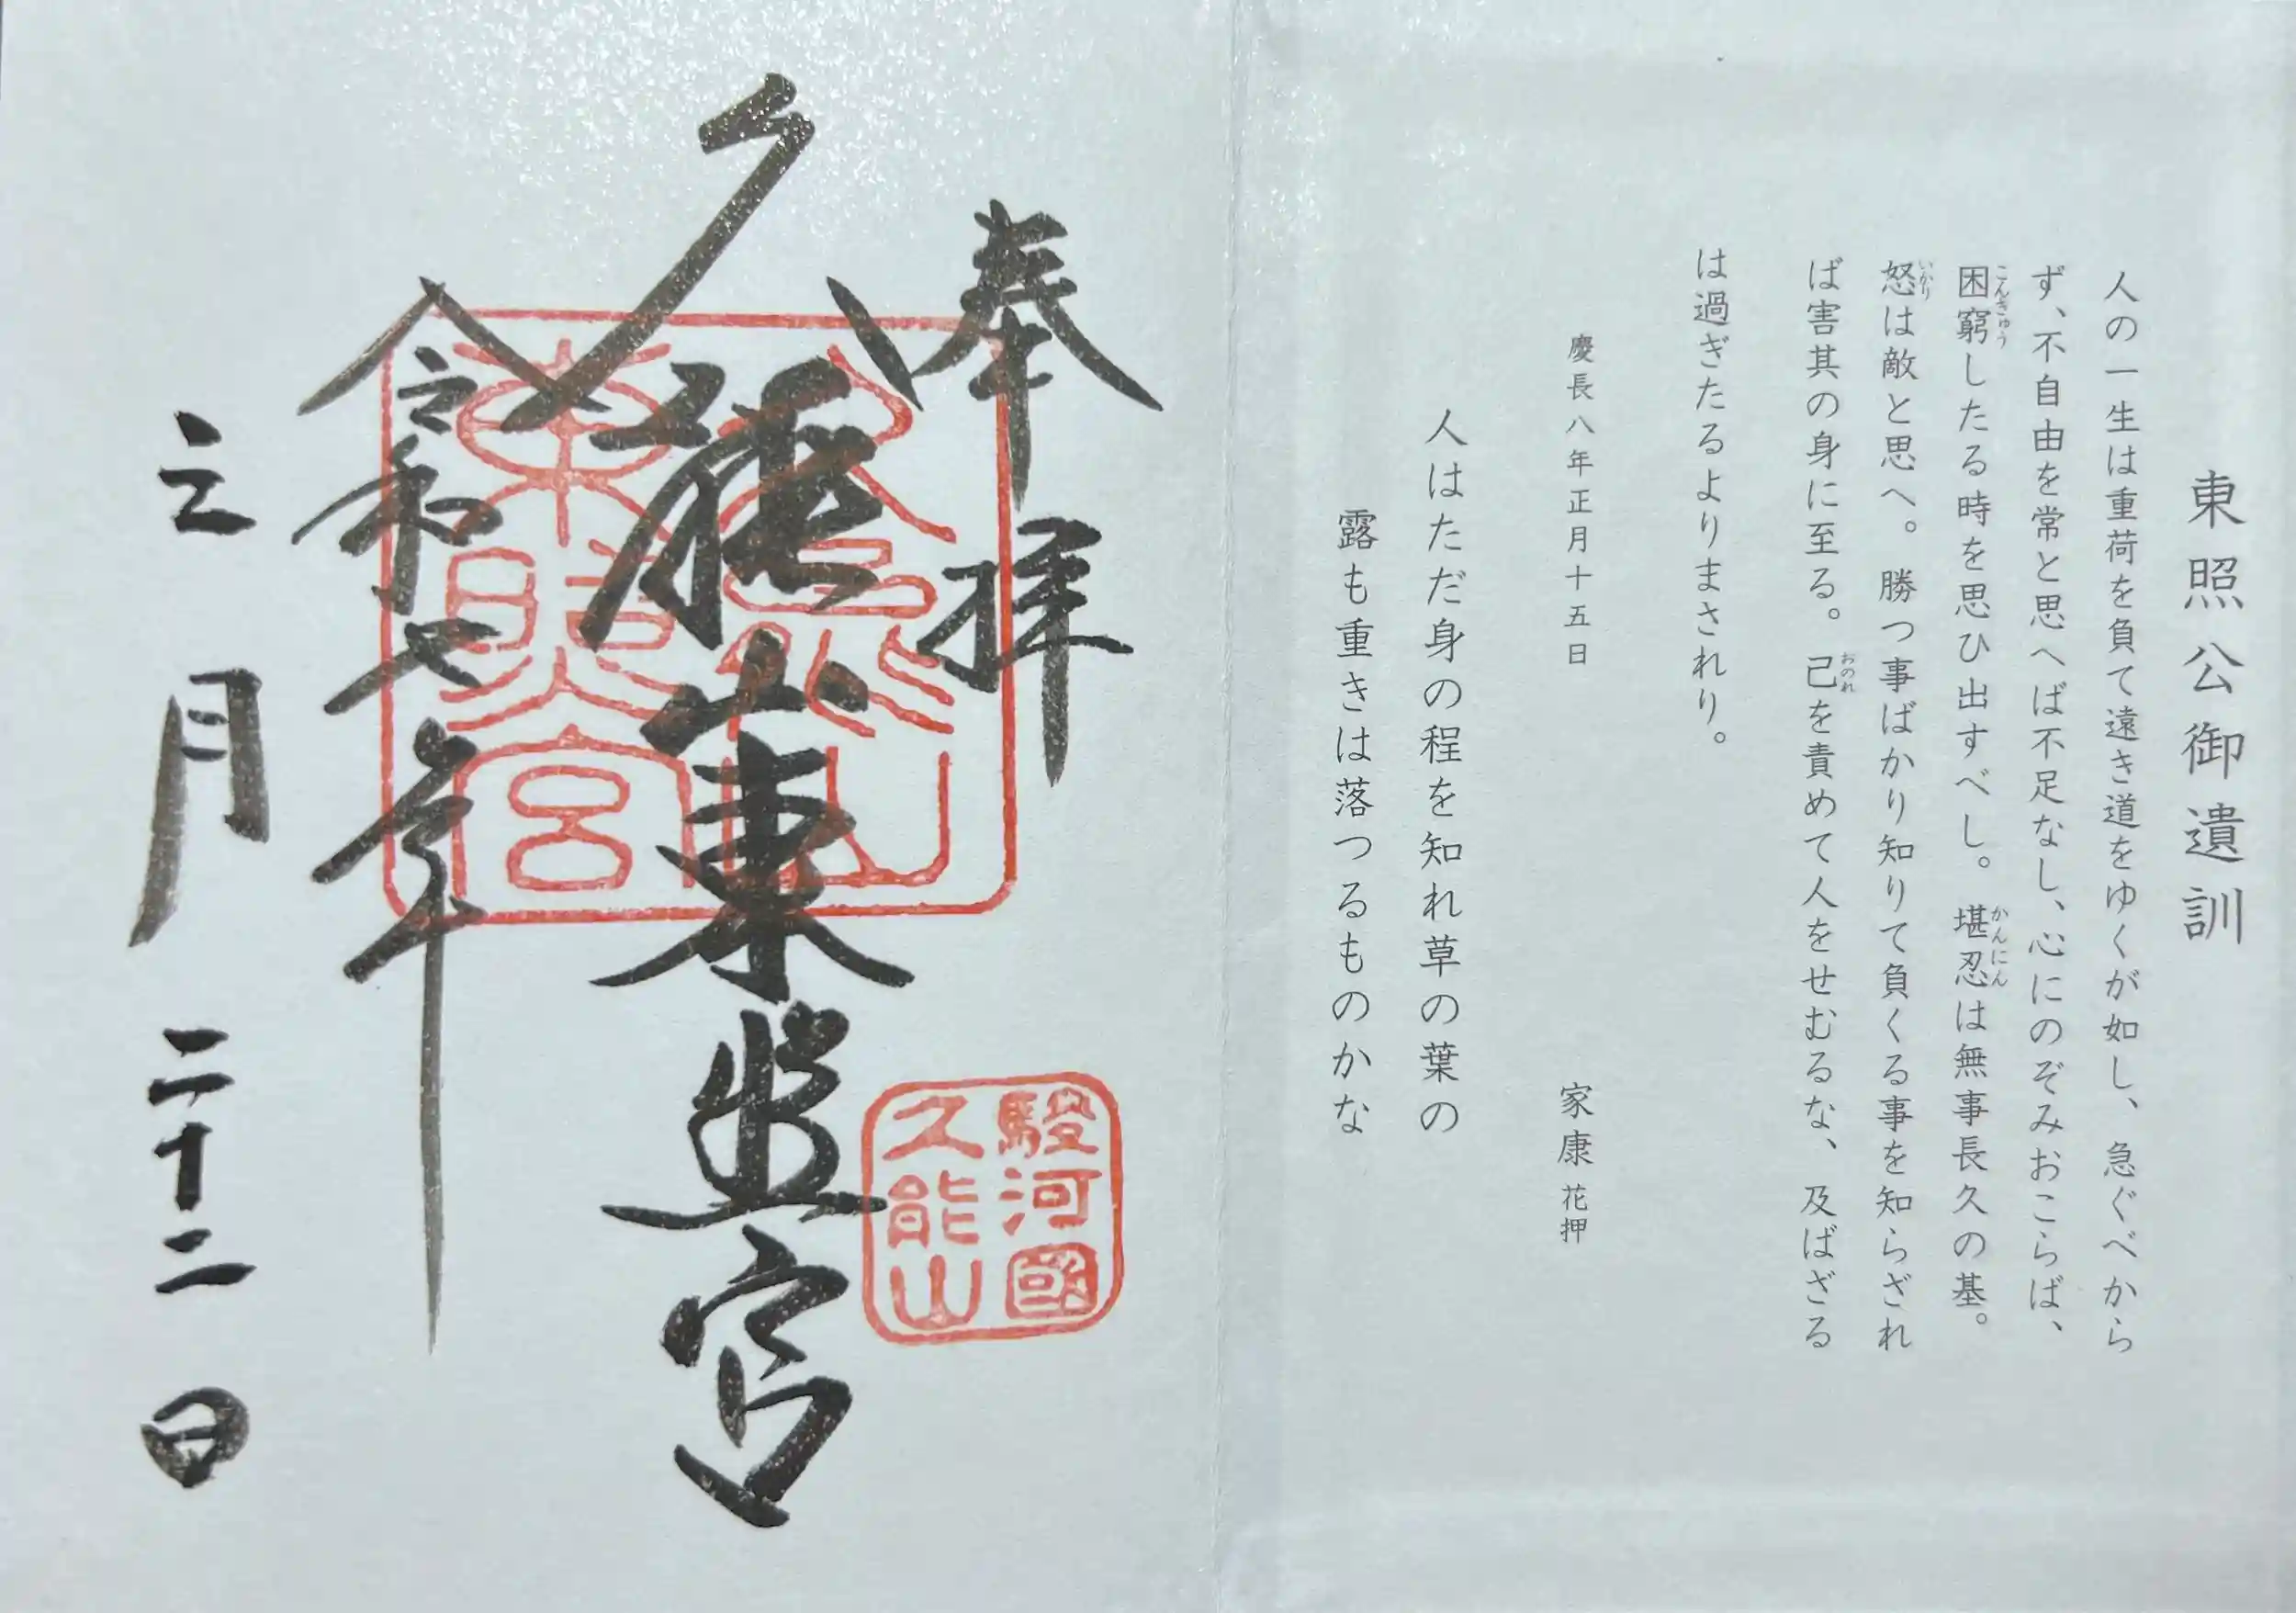 東照公御遺訓
人の一生は重荷を負て遠き道をゆくが如し、急ぐべから
ず、不自由を常と思へば不足なし、心にのぞみおこらば、
困窮したる時を思ひ出すべし。堪忍は無事長久の基。
こんきゅう
かんにん
怒は敵と思へ。勝つ事ばかり知りて負くる事を知らざれ
いかり
ば害其の身に至る。己を責めて人をせむるな、及ばざる
おのれ
は過ぎたるよりまされり。
慶長八年正月十五日
家康 花押
人はただ身の程を知れ草の葉の
露も重きは落つるものかな
奉拝
久能山東照宮
令和七年
三月二十二日
久能山
東照宮
駿河國
久能山